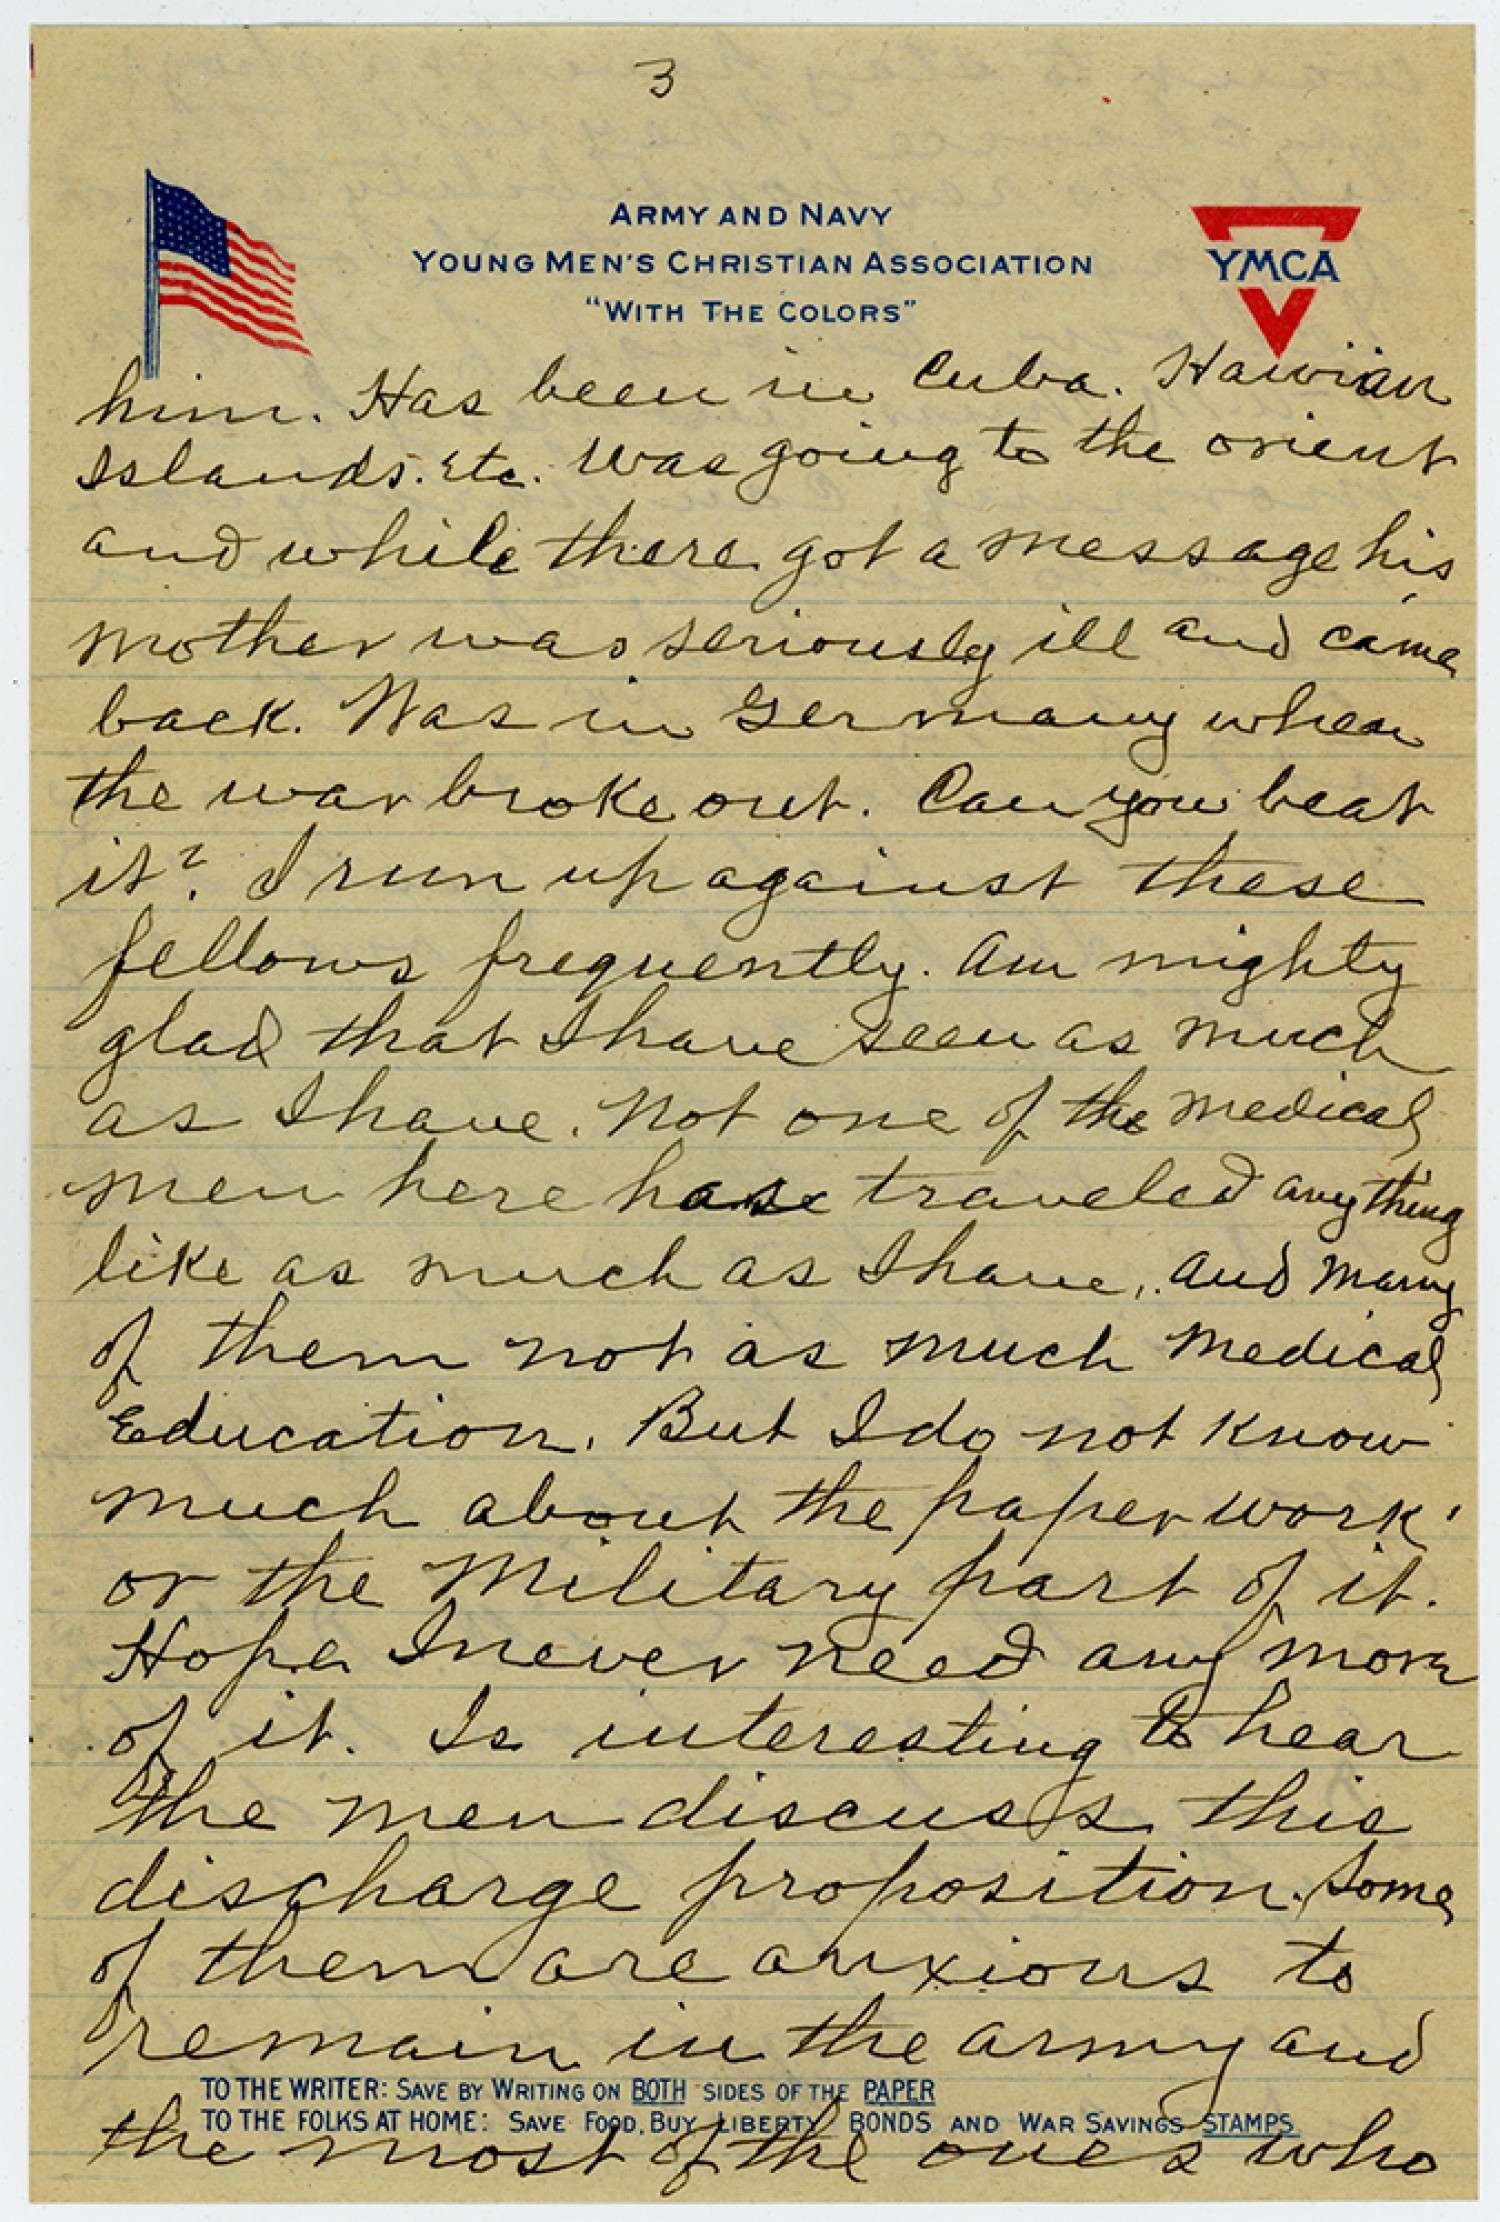 3
ARMY AND NAVY
YOUNG MEN'S CHRISTIAN ASSOCIATION
"WITH THE COLORS"
YMCA
him. Has been in Cuba. Hawiian
Islands. Etc. Was going to the orient
and while there got a message his
mother was seriously ill and came
back. Was in Germany when
the war broke out. Can you beat
it? I run up against these
fellows frequently. Am mighty
glad that I have seen as much
as I have. Not one of the medical
men here have traveled anything
like as much as I have, and many
of them not as much medical
Education. But I do not know
much about the paper work
or the Military part of it.
Hope I never need any more
of it. Is interesting to hear
the men discuss this
discharge proposition. Some
of them are anxious to
remain in the army and
TO THE WRITER: SAVE BY WRITING ON BOTH SIDES OF THE PAPER
TO THE FOLKS AT HOME: SAVE FOOD, BUY LIBERTY BONDS AND WAR SAVINGS STAMPS
the most of the ones who